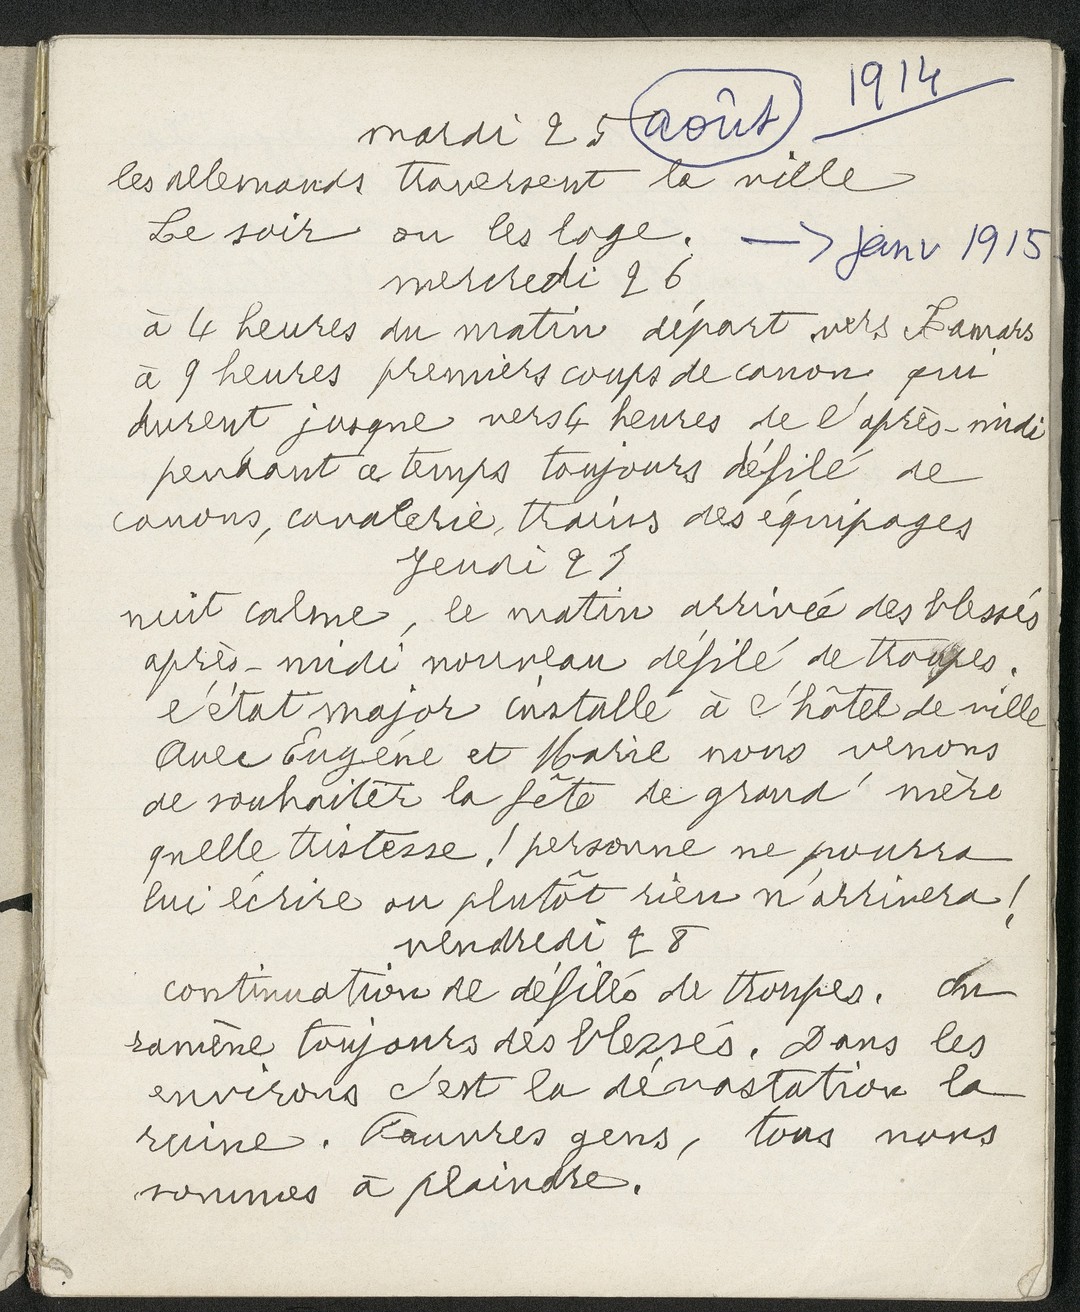 1914
mardi 25 août
les allemands traversent la ville
Le soir on les loge.
→ janv 1915
mercredi 26
à 4 heures du matin départ vers Lamars
à 9 heures premiers coups de canon qui
durent jusque vers 4 heures de l'après-midi
pendant ce temps toujours défilé de
canons, cavalerie, trains des équipages
Jeudi 27
nuit calme, le matin arrivée des blessés
après-midi nouveau défilé de troupes.
l'état major installé à l'hôtel de ville
Avec Eugéne et Marie nous venons
de souhaiter la fête de grand'mère
quelle tristesse! personne ne pourra
lui écrire ou plutôt rien n'arrivera!
vendredi 28
continuation de défilés de troupes. On
ramène toujours des blessés. Dans les
environs c'est la dévastation la
ruine. Pauvres gens, tous nous
sommes à plaindre.